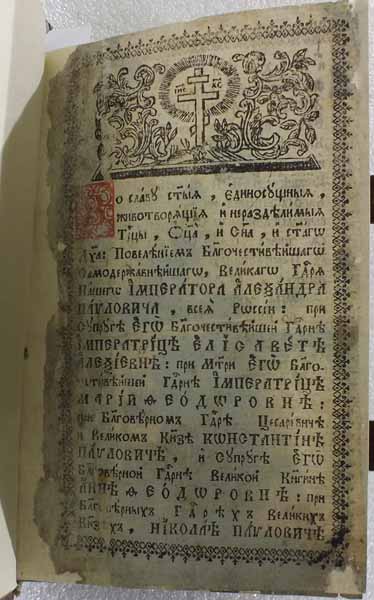 ІНЦІ ХС
Во сла́ву ст҃ы́ѧ, є҆диносꙋ́щныѧ,
животворѧ́щїѧ и҆ нераздѣли́мыѧ
Трⷪ҇цы, Ѻ҆ц҃а̀, и҆ Сн҃а, и҆ ст҃а́гѡ
Дх҃а: Повелѣ́нїемъ Бл҃гочести́вѣйшагѡ
Самодержа́внѣйшагѡ, Вели́кагѡ Гдⷭ҇рѧ
На́шегѡ І҆МПЕРА́ТОРА А҆ЛЕѮА́НДРА
ПА́ѴЛОВИЧА, всеѧ̀ Рѡссі́и: при
Сꙋпрꙋ́гѣ Є҆ГѠ̀ Бл҃гочести́вѣйшей Гдⷭ҇рнѣ
І҆МПЕРАТРИ́ЦѢ Є҆ЛІСАВЕ́ТѢ
А҆ЛЕѮІ́ЕВНѢ: при Мт҃ри Є҆ГѠ̀ Бл҃го-
чести́вѣйшей Гдⷭ҇рнѣ І҆МПЕРАТРИ́ЦѢ
МАРІ́И Ѳ҆ЕО́ДѠРОВНѢ:
при Бл҃говѣ́рномъ Гдⷭ҇рѣ Цесаре́вичѣ
и҆ Вели́комъ Кнѧ́зѣ КѠНСТАНТІ́НѢ
ПА́ѴЛОВИЧѢ, и҆ Сꙋпрꙋ́гѣ Є҆ГѠ̀
Бл҃говѣ́рной Гдⷭ҇рнѣ Вели́кой Кнѧги́нѣ
А҆́ННѢ Ѳ҆ЕО́ДѠРОВНѢ: при
Бл҃говѣ́рныхъ Гдⷭ҇рѣхъ Вели́кихъ
Кнѧзѣ́хъ, НІКОЛА́Ѣ ПА́ѴЛОВИЧѢ